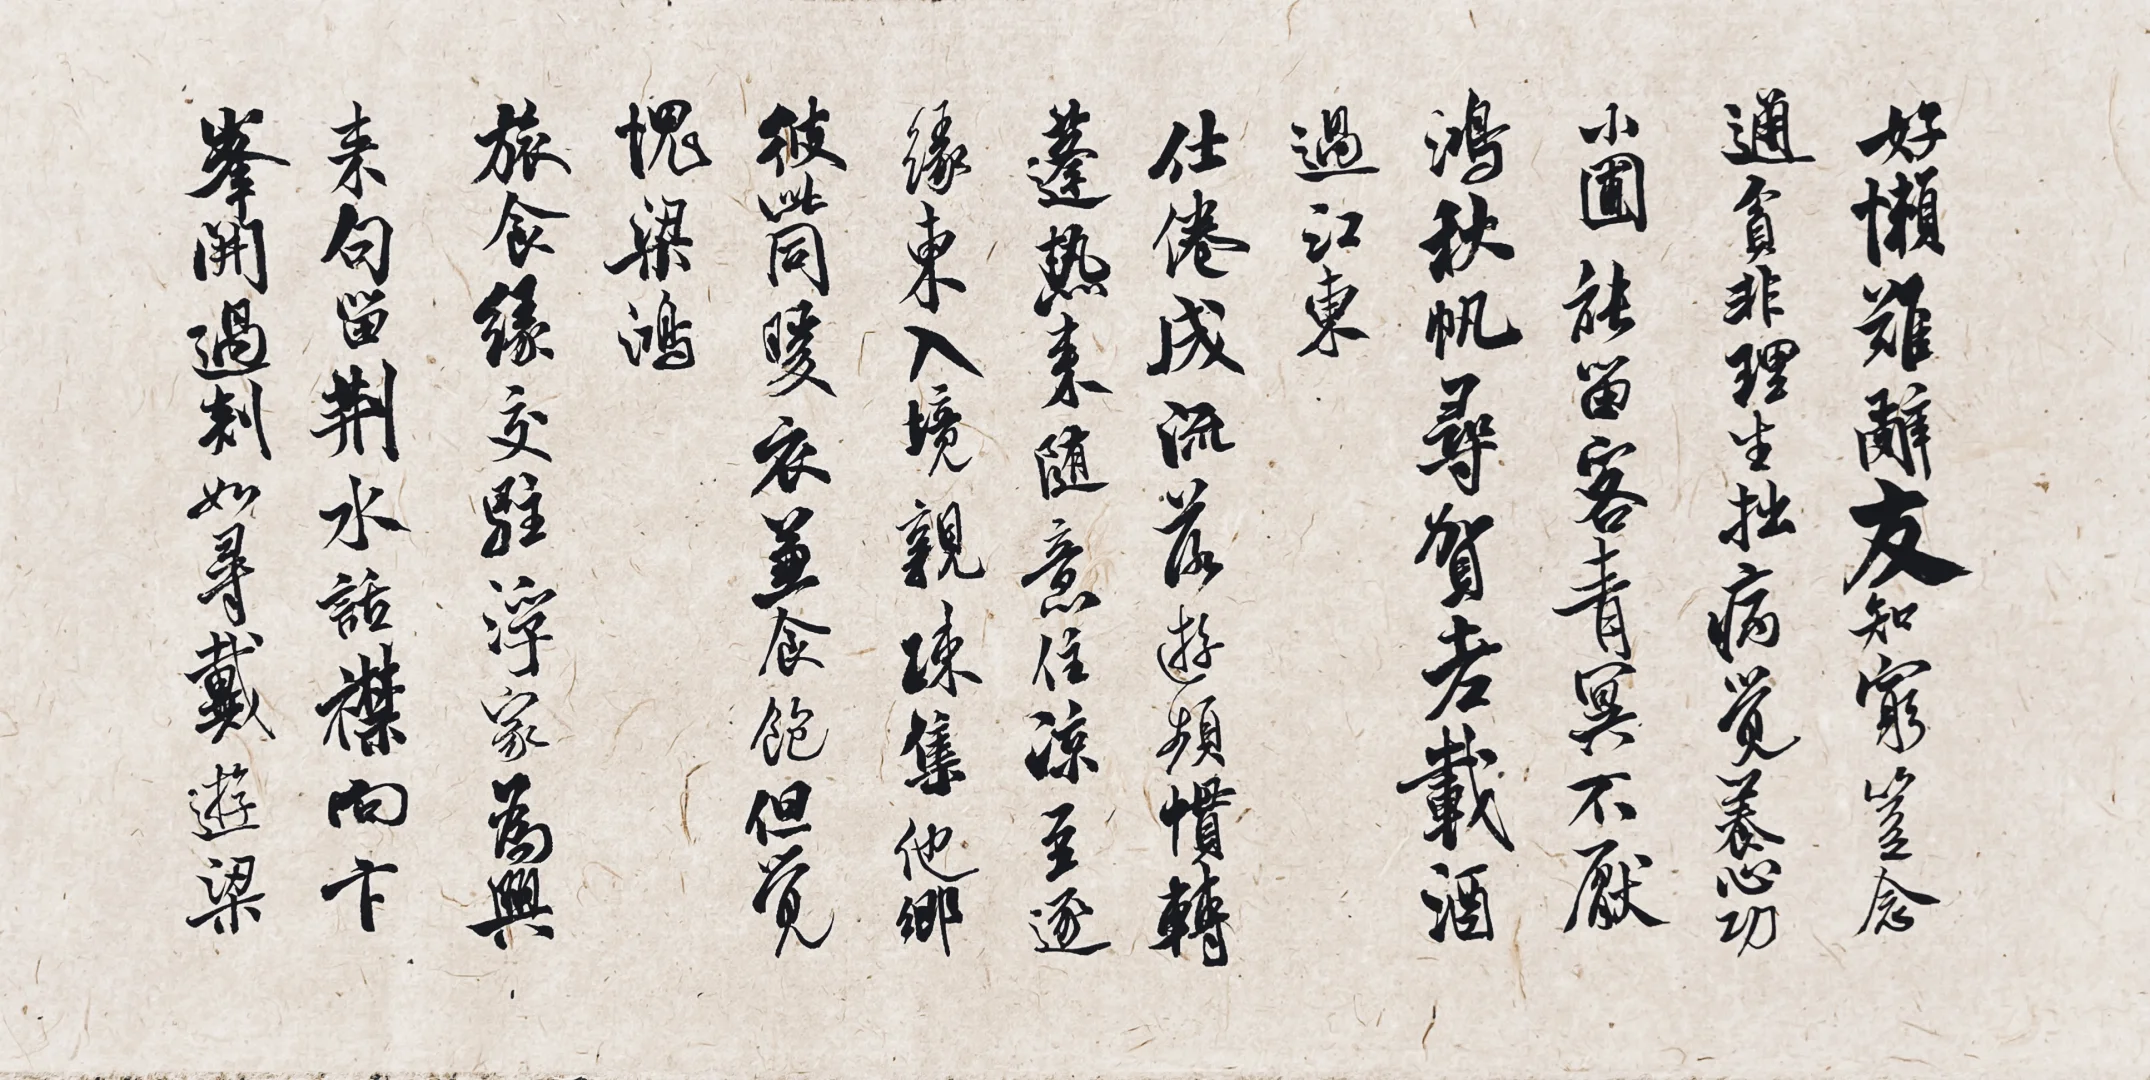 好懶難辭友知窮豈念
通貧非理生拙病覺養心功
小圃能留客青冥不厭
鴻秋帆尋賀老載酒
過江東
仕倦成流落遊頻慣轉
蓬熱來隨意住涼至逐
緣東入境親踈集他鄉
彼此同暖衣兼食飽但覺
愧梁鴻
旅食緣交駐浮家為興
來句留荆水話襟向卞
峯開過剡如尋戴遊梁